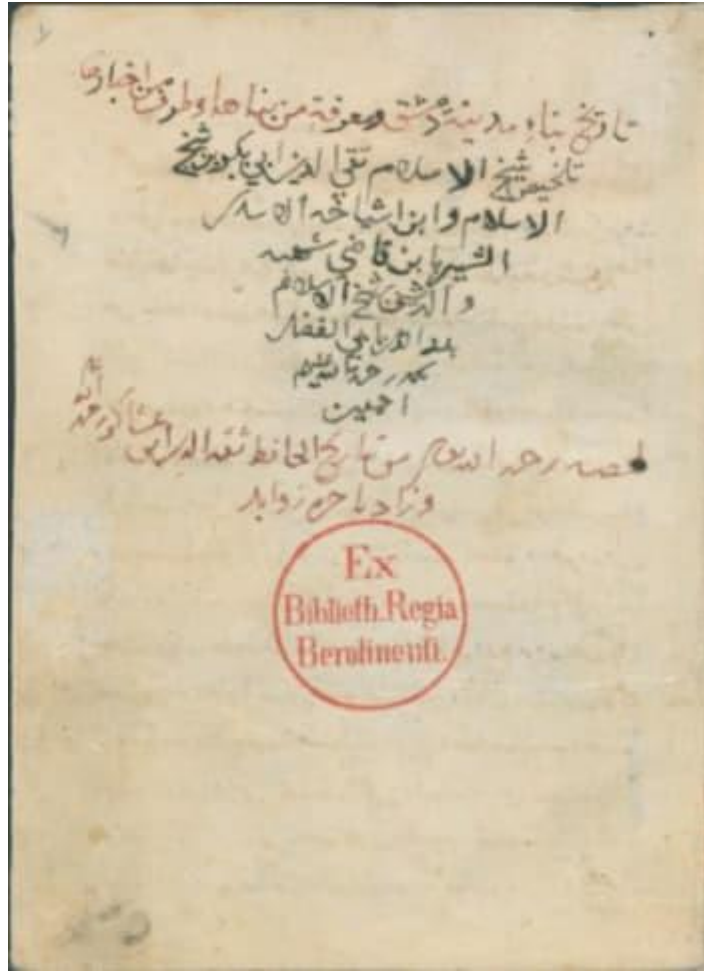 تاريخ بناء مدينة دمشق ومعرفة من بناها وطرف من اخبارها
تلخيص شيخ الاسلام تقي الدين ابي بكر بن شيخ
الاسلام وابن اشياخ الاسلام
الشهير بابن قاضي شهبه
والدمشقي شيخ الاسلام
بدر الدين ابي الفضل
محمد رحمة الله عليهم
اجمعين
لخصه رحمه الله من تاريخ الحافظ ثقة الدين ابن عساكر رحمه الله
وزاد باخره زوايد
Ex
Biblioth. Regia
Berolinensi.